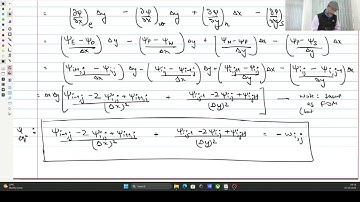 = (∂ψ/∂x)_e Δy − (∂ψ/∂x)_w Δy + (∂ψ/∂y)_n Δx − (∂ψ/∂y)_s
= (ψ_E − ψ_P / Δx) Δy − (ψ_P − ψ_W / Δx) Δy + (ψ_N − ψ_P / Δy) Δx − (ψ_P − ψ_S / Δy)
= (ψ_{i+1,j} − ψ_{i,j} / Δx) Δy − (ψ_{i,j} − ψ_{i-1,j} / Δx) Δy + (ψ_{i,j+1} − ψ_{i,j} / Δy) Δx − (ψ_{i,j} − ψ_{i,j-1} / Δy)
= Δx Δy [ψ_{i-1,j} − 2 ψ_{i,j} + ψ_{i+1,j} / (Δx)² + ψ_{i,j-1} − 2ψ_{i,j} + ψ_{i,j+1} / (Δy)²] — Note: same
as FDM
(but
ψ_{i-1,j} − 2 ψ_{i,j} + ψ_{i+1,j} / (Δx)² + ψ_{i,j-1} − 2ψ_{i,j} + ψ_{i,j+1} / (Δy)² = − ω_{i,j}